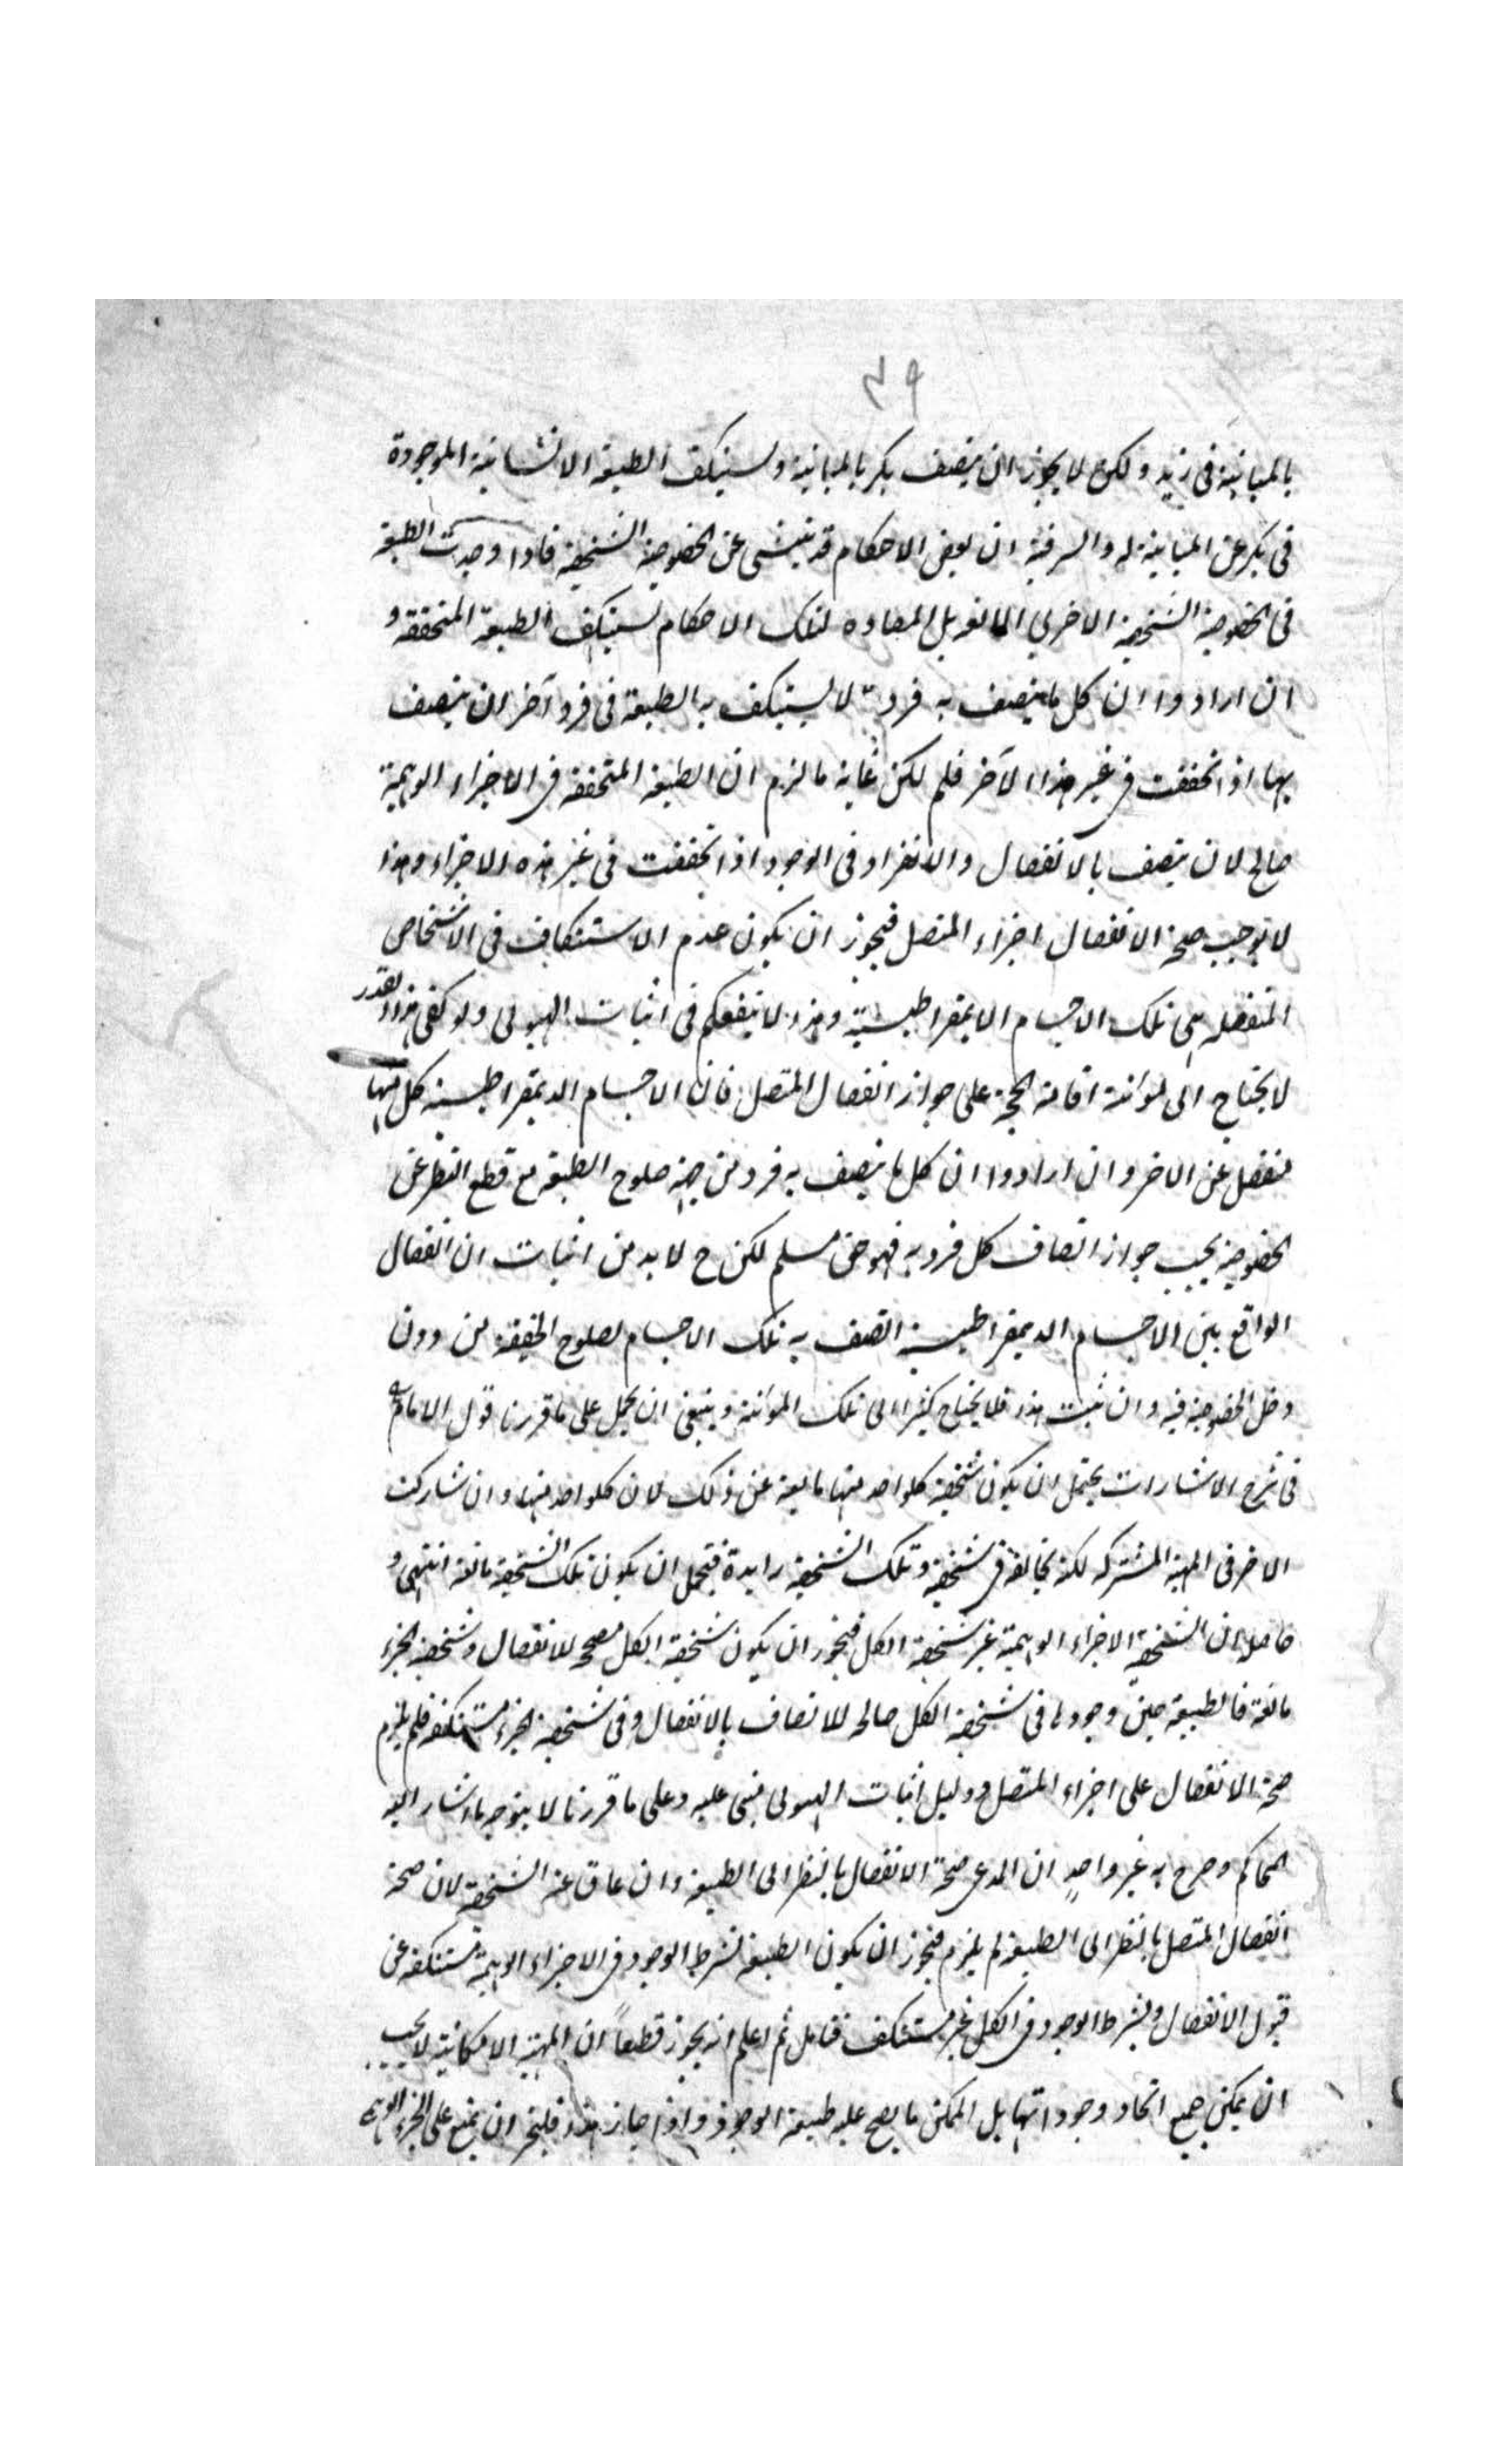 ٣٩
بالمباينة فى زيد ولكن لا يجوز ان يتصف بكر بالمباينة ويستنكف الطبيعة الانسانية الموجودة
فى بكر عن المباينة له والسر فيه ان بعض الاحكام قد ينشى عن الخصوصية الشخصية فاذا وجدت الطبيعة
فى الخصوصية الشخصية الاخرى المانعة بل المضاده لتلك الاحكام يستنكف الطبيعة المتحققة و
ان ارادوا ان كل ما يتصف به فرد لا يستنكف به الطبيعة فى فرد آخر ان يتصف
بها اذا تحققت فى غير هذا الآخر فلم لكن غاية ما لزم ان الطبيعة المتحققة فى الاجزاء الوهمية
صالح لان يتصف بالانفصال والانفراد فى الوجود اذا تحققت فى غير هذه الاجزاء وهذا
لا يوجب صحة الانفصال اجزاء المتصل فيجوز ان يكون عدم الاستنكاف فى الاشخاص
المنفصله هى تلك الاجسام الديمقراطيسية وهذا لا ينفعكم فى اثبات الهيولى ولو كفى هذا القدر
لا يحتاج الى مؤنة اقامة الحجة على جواز انفصال المتصل فان الاجسام الديمقراطيسية كل منها
منفصل عن الاخر وان ارادوا ان كل ما يتصف به فرد من جهة صلوح الطبيعة مع قطع النظر عن
الخصوصية يجب جواز اتصاف كل فرد به فهو حق مسلم لكن ح لا بد من اثبات ان انفصال
الواقع بين الاجسام الديمقراطيسية اتصف به تلك الاجسام لصلوح الحقيقة من دون
دخل الخصوصية فيه وان ثبت هذا فلا يحتاج كثيرا الى تلك المؤنة وينبغى ان يحمل على ما قررنا قول الامام
فى شرح الاشارات يحتمل ان يكون شخصية كلواحد منها مانعة عن ذلك لان كلواحد منها وان شاركت
الاخر فى المهية المشتركه لكنه يخالفه فى شخصية وتلك الشخصية زايدة فيحتمل ان يكون تلك الشخصية مانعة انتهى و
حاصله ان الشخصية الاجزاء الوهمية غير شخصية الكل فيجوز ان يكون شخصية الكل مصححه للانفصال وشخصية الجزء
مانعة فالطبيعة حين وجودها فى شخصية الكل صالحه للاتصاف بالانفصال وفى شخصية الجزء مستنكفه فلم يلزم
صحة الانفصال على اجزاء المتصل ودليل اثبات الهيولى مبنى عليه وعلى ما قررنا لا يتوجه ما اشار اليه
المحاكم وصرح به غير واحد ان المدعى صحة الانفصال بالنظر الى الطبيعة وان عاق عنه الشخصية لان صحة
انفصال المتصل بالنظر الى الطبيعة لم يلزم فيجوز ان يكون الطبيعة بشرط الوجود فى الاجزاء الوهمية مستنكفه عن
قبول الانفصال وبشرط الوجود فى الكل غير مستنكف فتامل ثم اعلم انه يجوز قطعاً ان المهية الامكانية لا يجب
ان يمكن جميع انحاء وجوداتها بل الممكن ما يصح عليه طبيعة الوجود واذا جاز هذا فليجز ان يمتنع على الجزء الوهمى